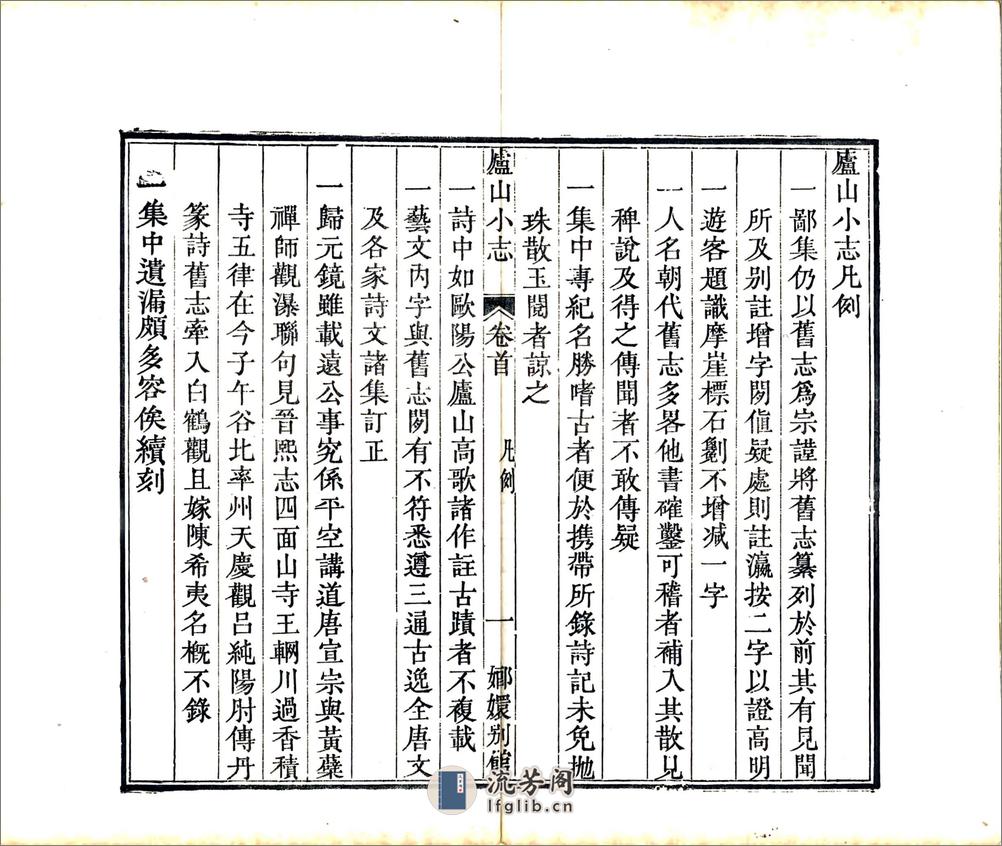 廬山小志凡例
一鄙集仍以舊志爲宗謹將舊志纂列於前其有見聞
所及别註增字閒値疑處則註瀛按二字以證高明
一遊客題識摩崖標石劖不增减一字
一人名朝代舊志多畧他書確鑿可稽者補入其散見
稗說及得之傳聞者不敢傳疑
一集中專紀名勝嗜古者便於携帶所錄詩記未免抛
珠散玉閱者諒之
廬山小志 卷首 凡例 一 嫏嬛别館
一詩中如歐陽公廬山高歌諸作註古蹟者不複載
一藝文內字與舊志閒有不符悉遵三通古逸全唐文
及各家詩文諸集訂正
一歸元鏡雖載遠公事究係平空講道唐宣宗與黃蘗
禪師觀瀑聯句見晉熙志四面山寺王輞川過香積
寺五律在今子午谷比率州天慶觀吕純陽肘傳丹
篆詩舊志牽入白鶴觀且嫁陳希夷名概不錄
一集中遺漏頗多容俟續刻
流芳阁
lfglib.cn